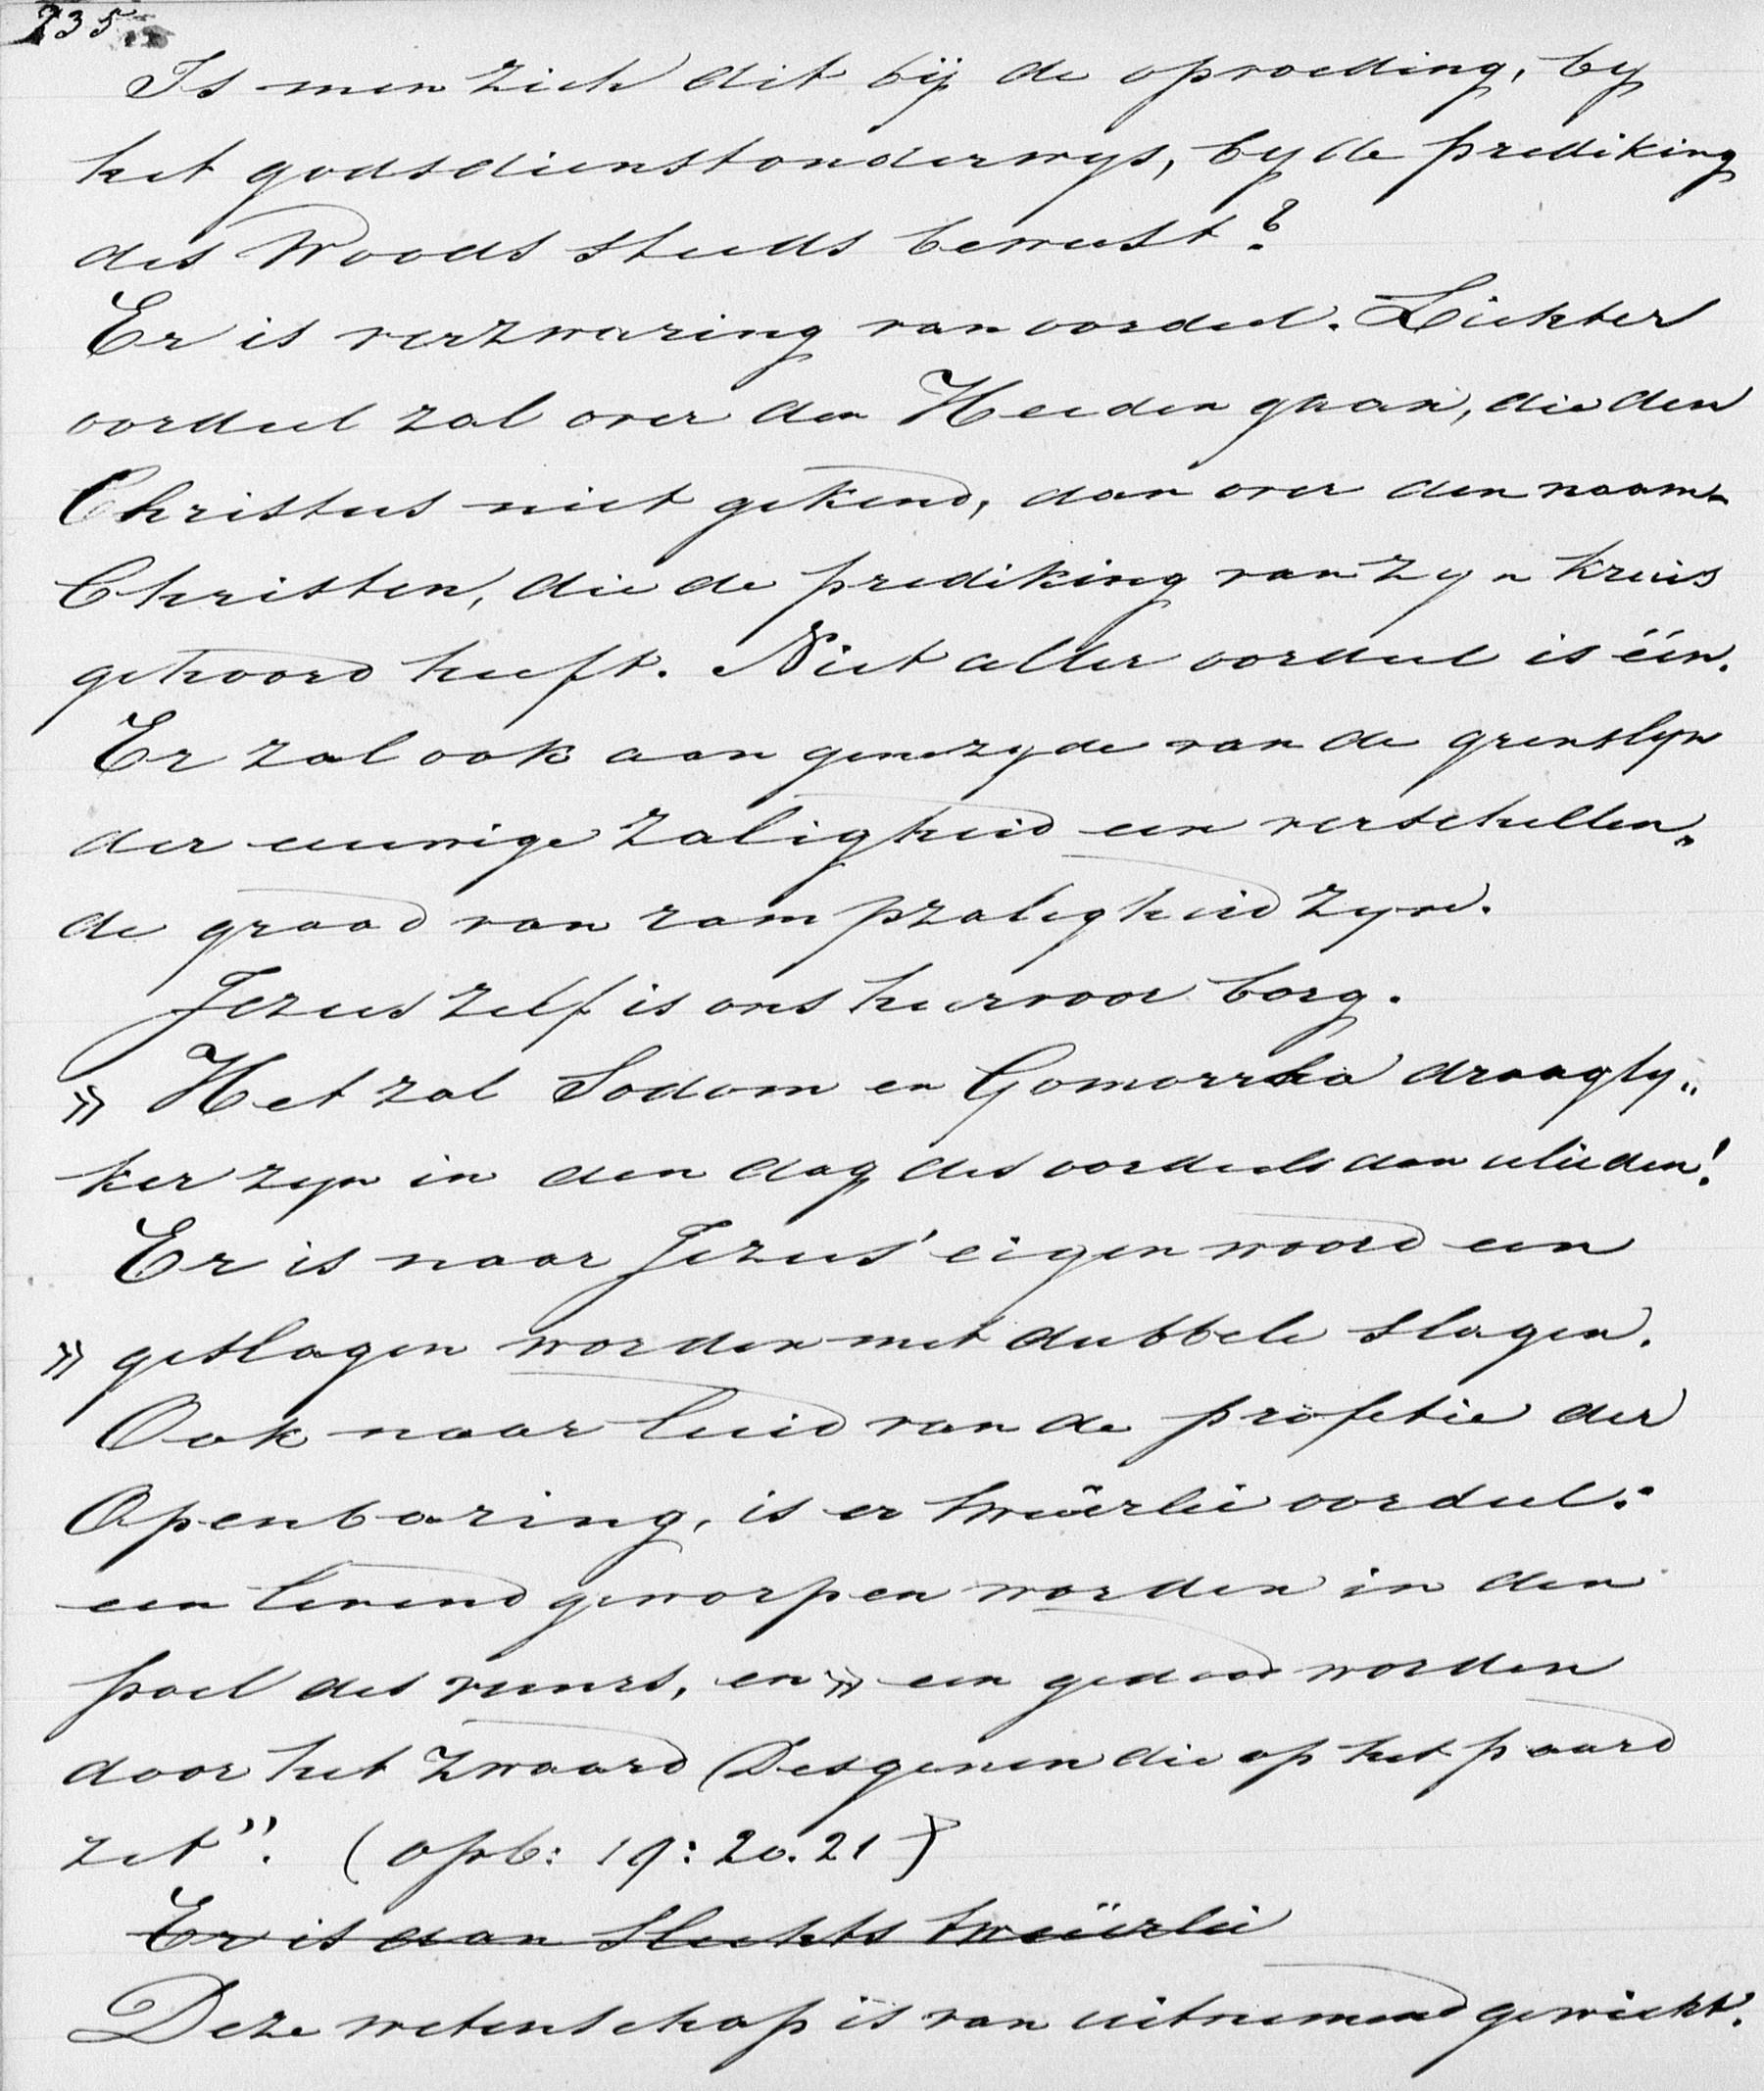 235
Is men zich dit bij de opvoeding, by
het godsdienstonderwys, by de prediking
des Woords steeds bewust?
Er is verzwaring van oordeel. Lichter
oordeel zal over den Heiden gaan, die den
Christus niet gekend, dan over den naam-
Christen, die de prediking van zyn kruis
gehoord heeft. Niet aller oordeel is één.
Er zal ook aan genezyde van de grenslyn
der eeuwige zaligheid een verschillen„
de graad van rampzaligheid zyn.
Jezus zelf is ons hiervoor borg.
» Het zal Sodom en Gomorrha draagly„
ker zyn in den dag des oordeels dan ulieden!
Er is naar Jezus' eigen woord een
» geslagen worden met dubbele slagen.
Ook naar luid van de profetie der
Openbaring, is er tweeërlei oordeel:
een levend geworpen worden in den
poel des vuurs, en » een gedood worden
door het zwaard Desgenen die op het paard
zit”. (opb: 19: 20. 21)
Er is dan slechts tweeërlei
Deze wetenschap is van uitnemend gewicht.